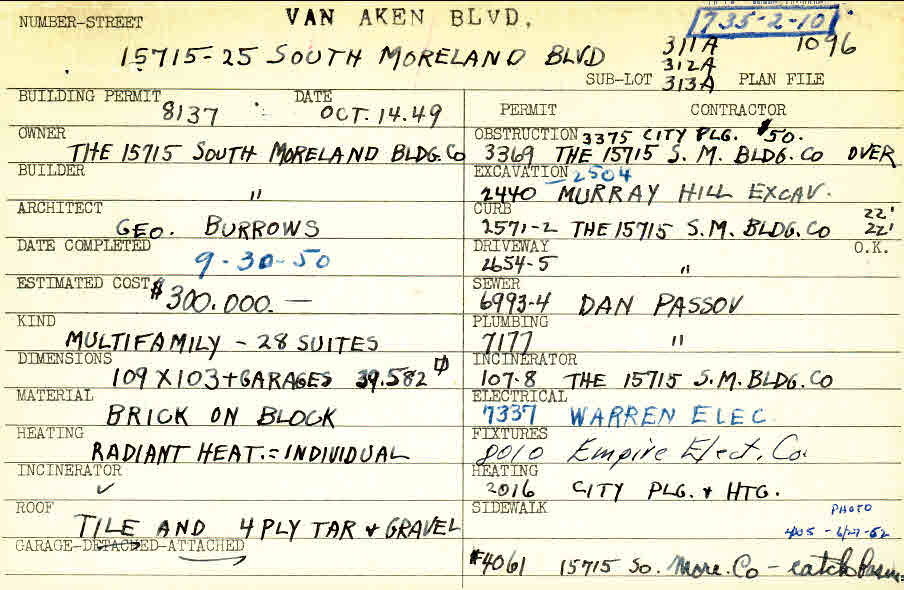 NUMBER-STREET VAN AKEN BLVD. 735-2-10
15715-25 SOUTH MORELAND BLVD 311A 1096
312A
SUB-LOT 313A PLAN FILE
BUILDING PERMIT 8137 DATE OCT. 14.49
OWNER THE 15715 SOUTH MORELAND BLDG. CO
BUILDER "
ARCHITECT GEO. BURROWS
DATE COMPLETED 9-30-50
ESTIMATED COST $300.000.—
KIND MULTIFAMILY - 28 SUITES
DIMENSIONS 109 X 103 + GARAGES 39.582
MATERIAL BRICK ON BLOCK
HEATING RADIANT HEAT.= INDIVIDUAL
INCINERATOR ✓
ROOF TILE AND 4 PLY TAR + GRAVEL
GARAGE-DETACHED-ATTACHED
PERMIT CONTRACTOR
OBSTRUCTION 3375 CITY PLG. $50.
3369 THE 15715 S. M. BLDG. CO OVER
EXCAVATION 2504
2440 MURRAY HILL EXCAV.
CURB 22'
2571-2 THE 15715 S.M. BLDG. CO 22'
DRIVEWAY O.K.
2654-5 "
SEWER
6993-4 DAN PASSOV
PLUMBING
7177 "
INCINERATOR
107-8 THE 15715 S.M. BLDG. CO
ELECTRICAL
7337 WARREN ELEC.
FIXTURES
8010 Empire Elect. Co.
HEATING
2016 CITY PLG. + HTG.
SIDEWALK PHOTO
405 - 6/27-52
#4061 15715 So. More. Co - catch basin